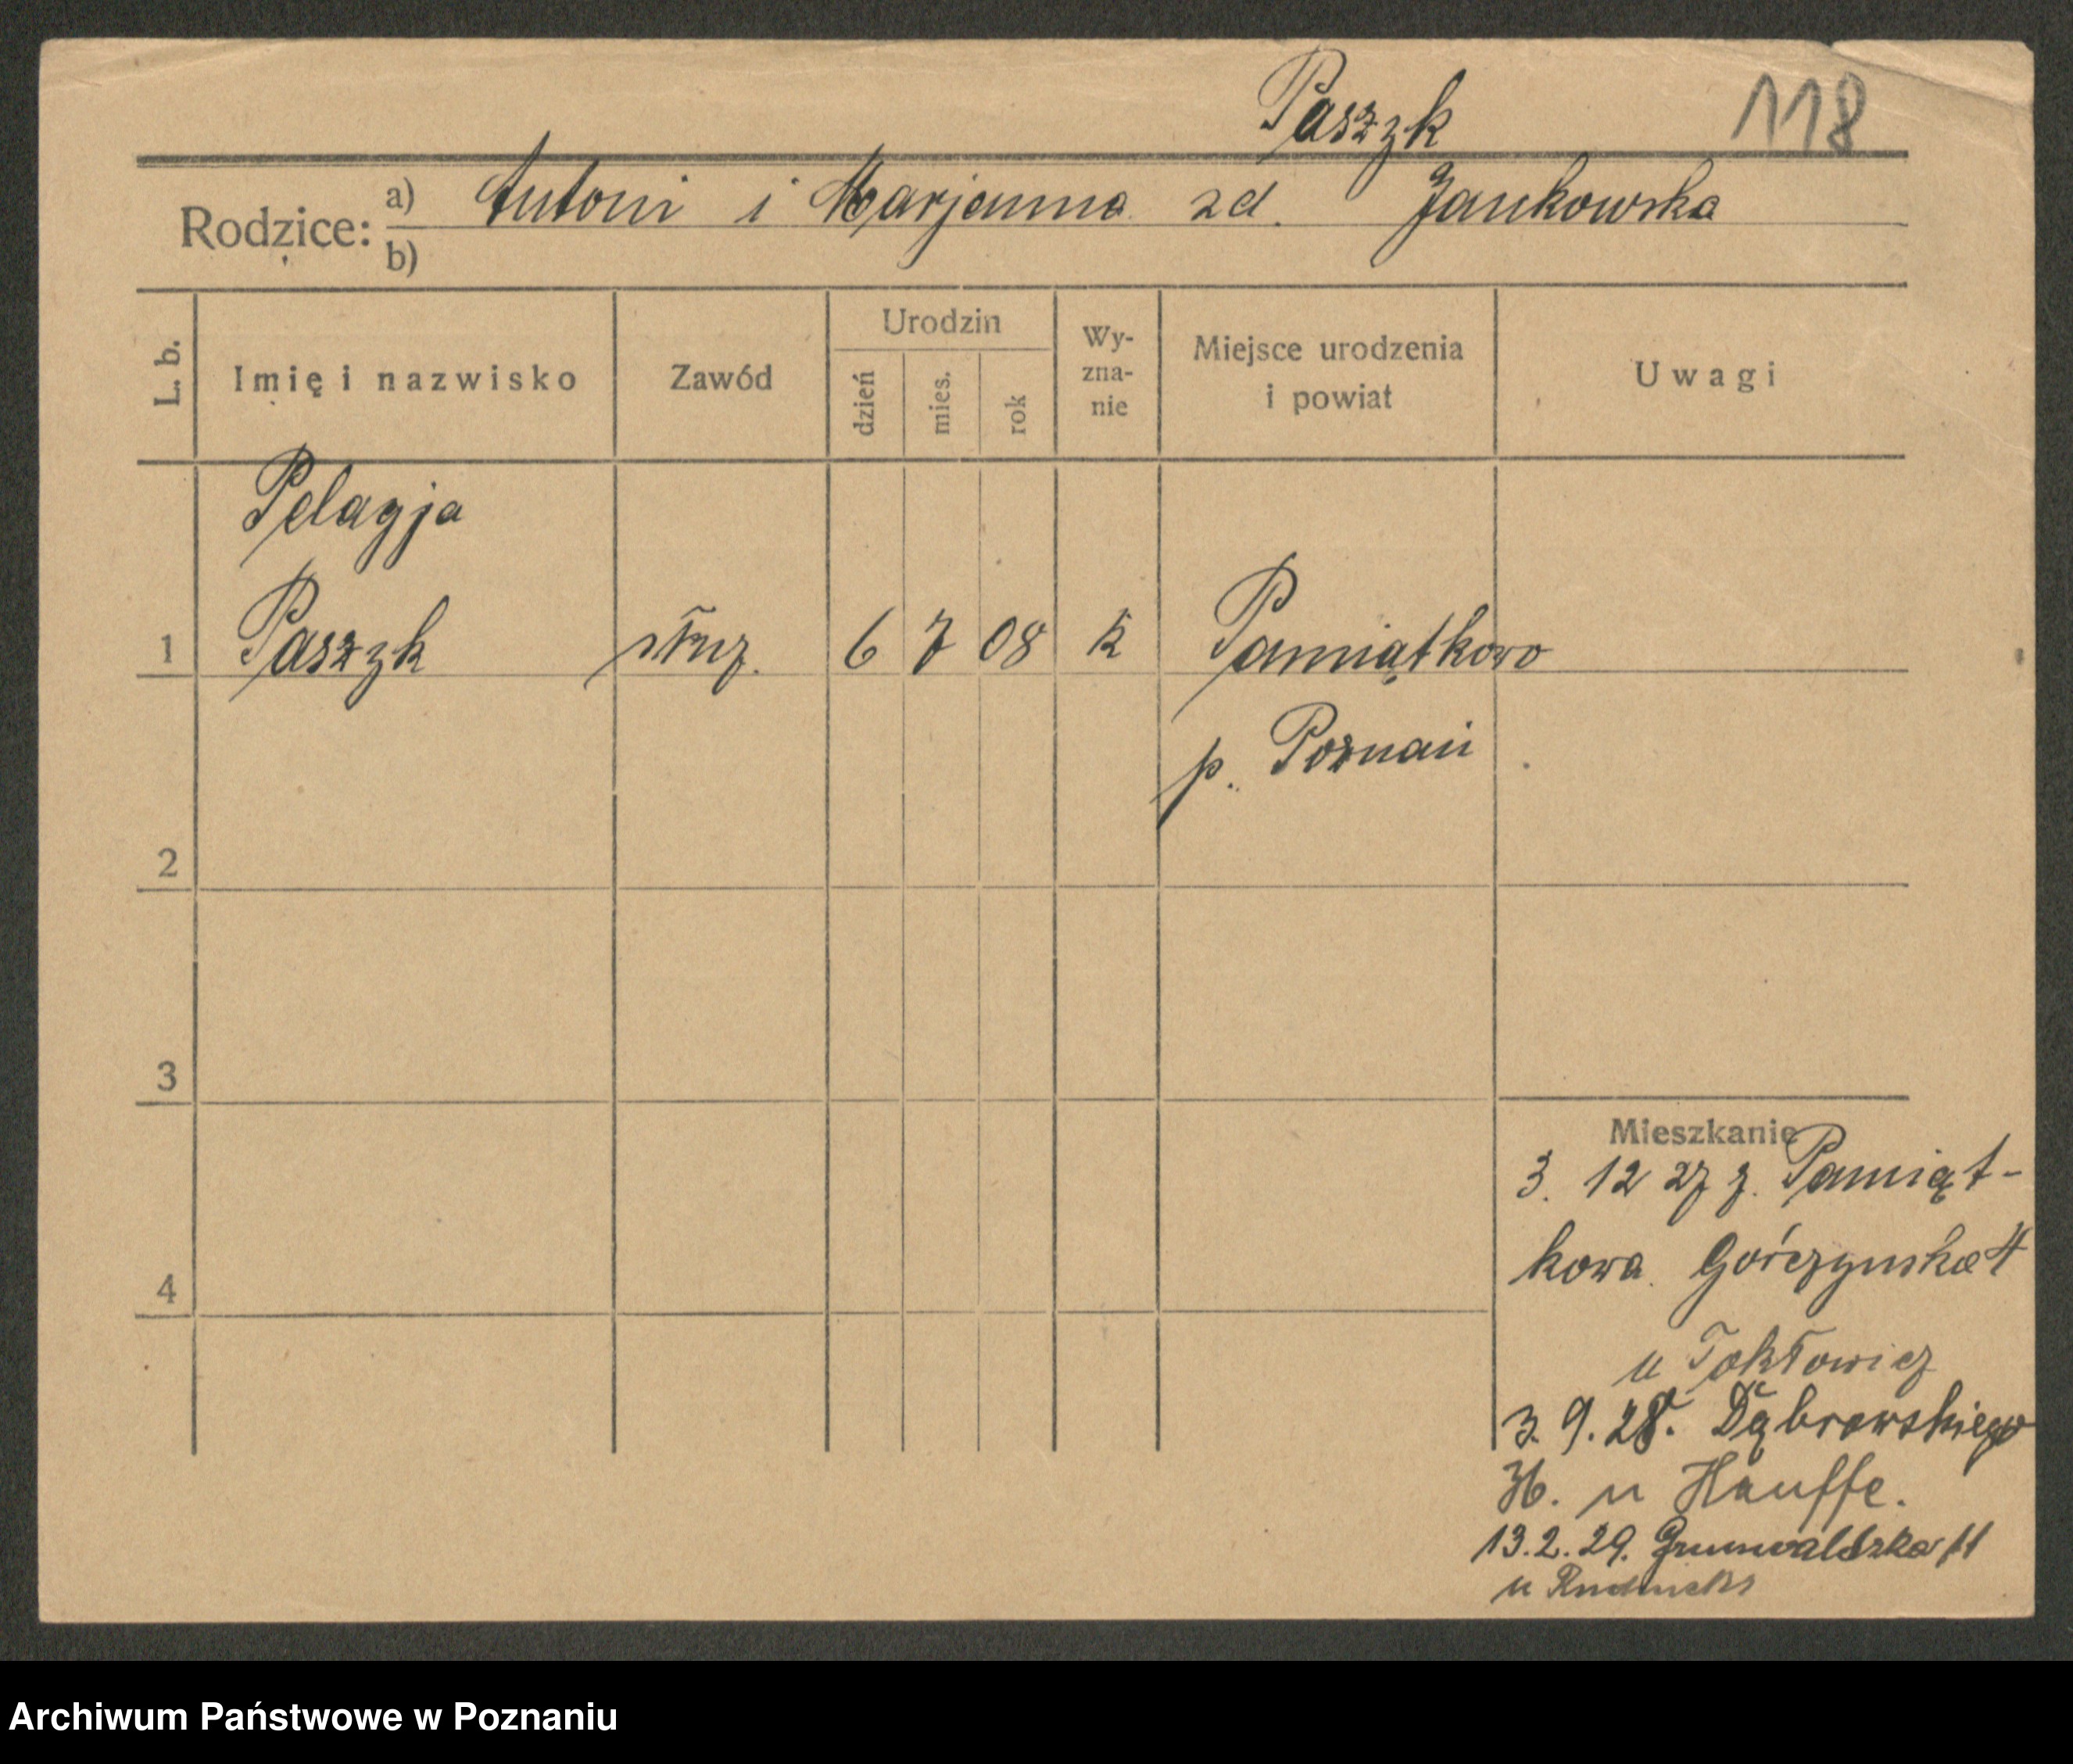 Paszyk 118
Rodzice: a) Antoni i Marjanna zd. Jankowska
b)
L. b. Imię i nazwisko Zawód Urodzin dzień mies. rok Wy-zna-nie Miejsce urodzenia i powiat Uwagi
Pelagja
1 Paszyk służ. 6 7 08 k Pamiątkowo
p. Poznań
2
3
Mieszkanie
3. 12 27 z. Pamiąt-
kowa. Górczyńska 4
4
u
3. 9. 28. Dąbrowskiego
36. u Hauffe.
13. 2. 29. Grunwaldzka 11
u
Archiwum Państwowe w Poznaniu